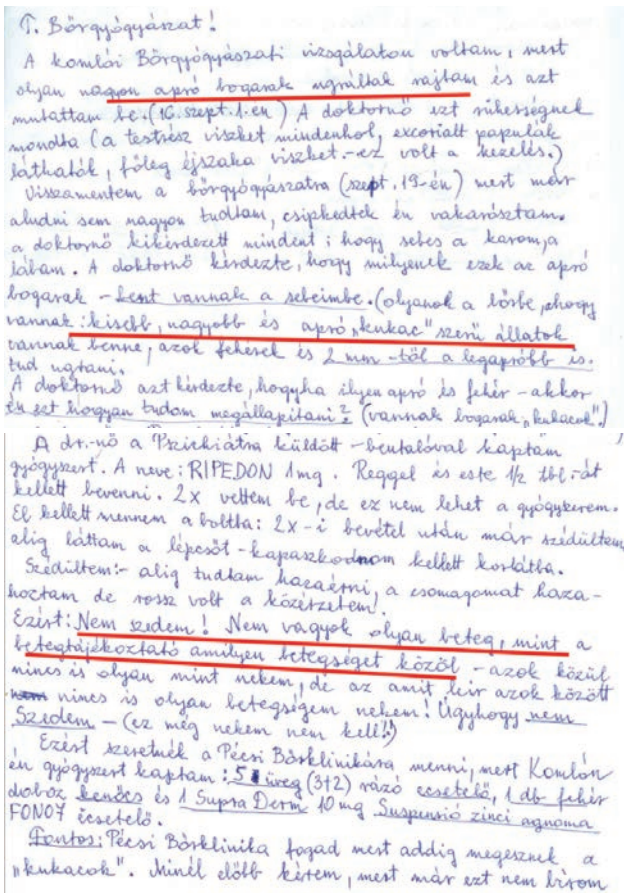 T. Bőrgyógyászat!
A komlói Bőrgyógyászati vizsgálaton voltam, mert
olyan nagyon apró bogarak ugráltak rajtam és azt
mutattam be. (16. szept. 1.-én) A doktornő ezt rühességnek
mondta (a testrész viszket mindenhol, excoriált papulák
láthatók, főleg éjszaka viszket.-ez volt a kezelés.)
Visszamentem a bőrgyógyászatra (szept. 19-én) mert már
aludni sem nagyon tudtam, csipkedtek én vakaróztam.
a doktornő kikérdezett mindent: hogy sebes a karom, a
lábam. A doktornő kérdezte, hogy milyenek ezek az apró
bogarak - bent vannak a sebeimbe. (olyanok a bőrbe, ahogy
vannak: kisebb, nagyobb és apró „kukac" szerű állatok
vannak benne, azok fehérek és 2 mm-től a legapróbb is.
tud ugrani.
A doktornő azt kérdezte, hogyha ilyen apró és fehér - akkor
én ezt hogyan tudom megállapítani? (vannak bogarak, „kukacok".)
A dr.-nő a Pszichiátra küldött - beutalóval kaptam
gyógyszert. A neve: RIPEDON 1 mg. Reggel és este 1/2 tbl.-át
kellett bevenni. 2x vettem be, de ez nem lehet a gyógyszerem.
El kellett mennem a boltba: 2x-i bevétel után már szédültem
alig láttam a lépcsőt - kapaszkodnom kellett korlátba.
Szédültem:- alig tudtam hazaérni, a csomagomat haza-
hoztam de rossz volt a közérzetem!
Ezért: Nem szedem! Nem vagyok olyan beteg, mint a
betegtájékoztató amilyen betegséget közöl - azok közül
nincs is olyan mint nekem, de az amit leír azok között
nincs is olyan betegségem nekem! Úgyhogy nem
Szedem - (ez még nekem nem kell!)
Ezért szeretnék a Pécsi Bőrklinikára menni, mert Komlón
én gyógyszert kaptam: 5 üveg (3+2) rázó ecsetelő, 1 db fehér
doboz kenőcs és 1 Supra Derm 10 mg Suspensió zinci aquosa
FONO7 ecsetelő.
Fontos: Pécsi Bőrklinika fogad mert addig megesznek a
„kukacok". Minél előbb kérem, mert már ezt nem bírom